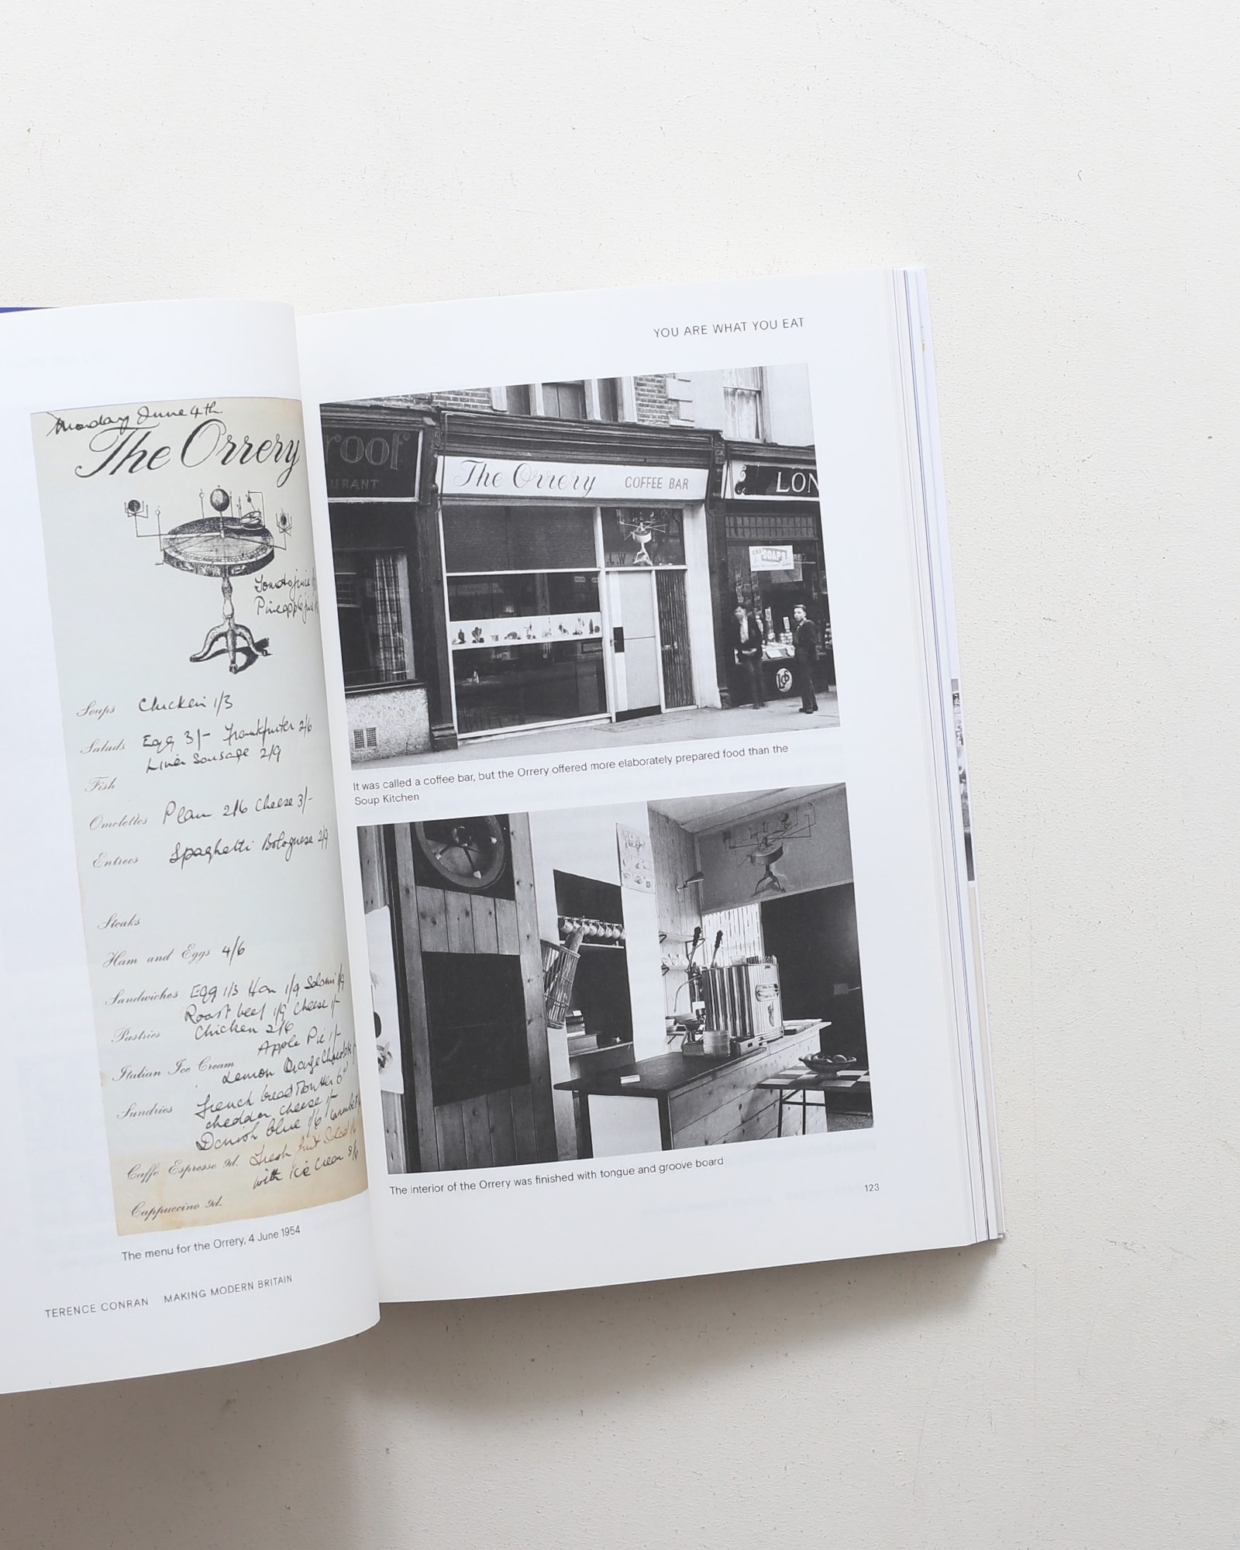 Monday June 4th
The Orrery
Pineapple
Soups Chicken 1/3
Salads Egg 3/- Frankfurter 2/6
Liver Sausage 2/9
Fish
Omelettes Plain 2/6 Cheese 3/-
Entrees Spaghetti Bolognese 2/9
Steaks
Ham and Eggs 4/6
Sandwiches Egg 1/3 Ham 1/9 Salami 1/9
Roast beef 1/9 Cheese 1/-
Pastries Chicken 2/6
Apple Pie 1/-
Italian Ice Cream Lemon Orange Chocolate
Sundries French bread Butter 6d
cheddar cheese 1/-
Danish Blue 1/6
Caffe Espresso 9d. Fresh Fruit Salad
with Ice Cream
Cappuccino 9d.
The menu for the Orrery, 4 June 1954
TERENCE CONRAN MAKING MODERN BRITAIN
YOU ARE WHAT YOU EAT
roof
URANT
The Orrery COFFEE BAR
LON
It was called a coffee bar, but the Orrery offered more elaborately prepared food than the
Soup Kitchen
The interior of the Orrery was finished with tongue and groove board
123